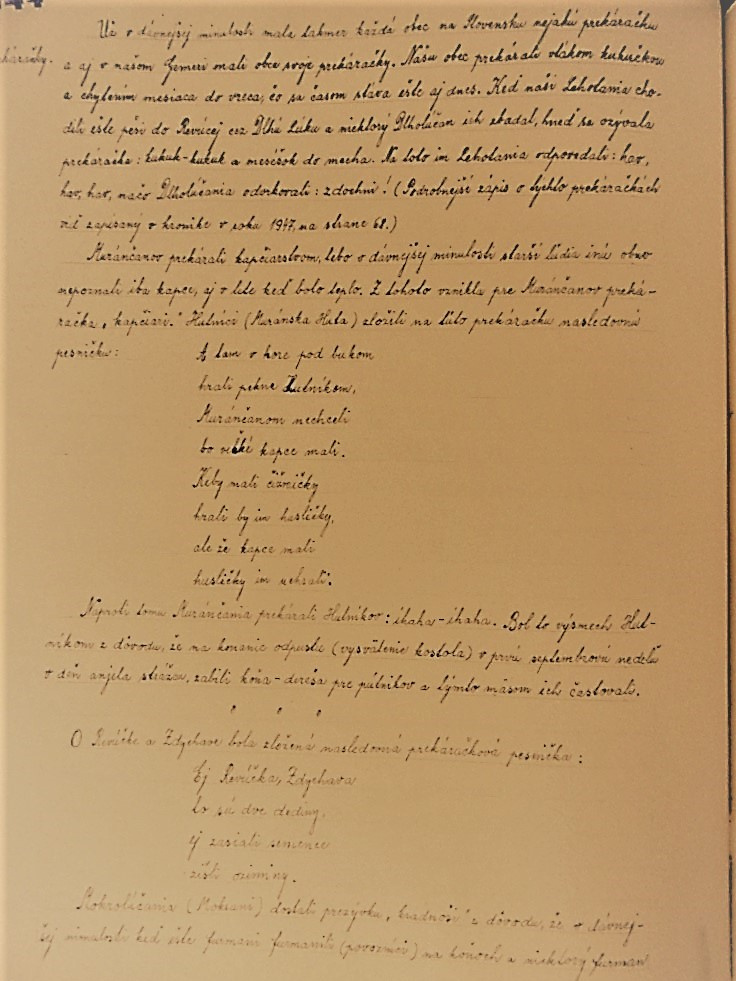 44
Už v dávnejšej minulosti mala takmer každá obec na Slovensku nejakú prekáračku
a aj v našom Gemeri mali obce svoje prekáračky. Našu obec prekárali vtákom kukučkou
a chytením mesiaca do vreca, čo sa časom stáva ešte aj dnes. Keď naši Lehoťania cho-
dili ešte peši do Revúcej cez Dlhú Lúku a niektorý Dlholúčan ich zbadal, hneď sa ozývala
prekáračka: kukuk-kukuk a mesěšok do mecha. Na toto im Lehoťania odpovedali: hav,
hav, hav, načo Dlholúčania odvrkovali: zdochni! (Podrobnejší zápis o týchto prekáračkách
viď zapísaný v kronike v roku 1947, na strane 68.)
Muráňčanov prekárali kapčiarstvom, lebo v dávnejšej minulosti starší ľudia inú obuv
nepoznali iba kapce, aj v lete keď bolo teplo. Z tohoto vznikla pre Muráňčanov preká-
račka „kapčiari." Hutníci (Muránska Huta) zložili na túto prekáračku nasledovnú
pesničku:
A tam v hore pod bukom
hrali pekne Hutníkom,
Muráňčanom nechceli
bo veľké kapce mali.
Keby mali čižmičky
hrali by im husličky,
ale že kapce mali
husličky im nehrali.
Naproti tomu Muráňčania prekárali Hutníkov: ihaha-ihaha. Bol to výsmech Hut-
níkom z dôvodu, že na konanie odpustu (vysvätenie kostola) v prvú septembrovú nedeľu
v deň anjela strážcu, zabili koňa-dereša pre pútnikov a týmto mäsom ich častovali.
" " "
O Revúčke a Zdychave bola zložená nasledovná prekáračková pesnička:
Ej Revúčka, Zdychava
to sú dve dediny,
ej zasiali semenec
zišli oziminy.
Mokrolúčania (Mokrani) dostali prezývku „kradnoši" z dôvodu, že v dávnej-
šej minulosti keď ešte furmani furmanili (povozníci) na koňoch a niektorý furman